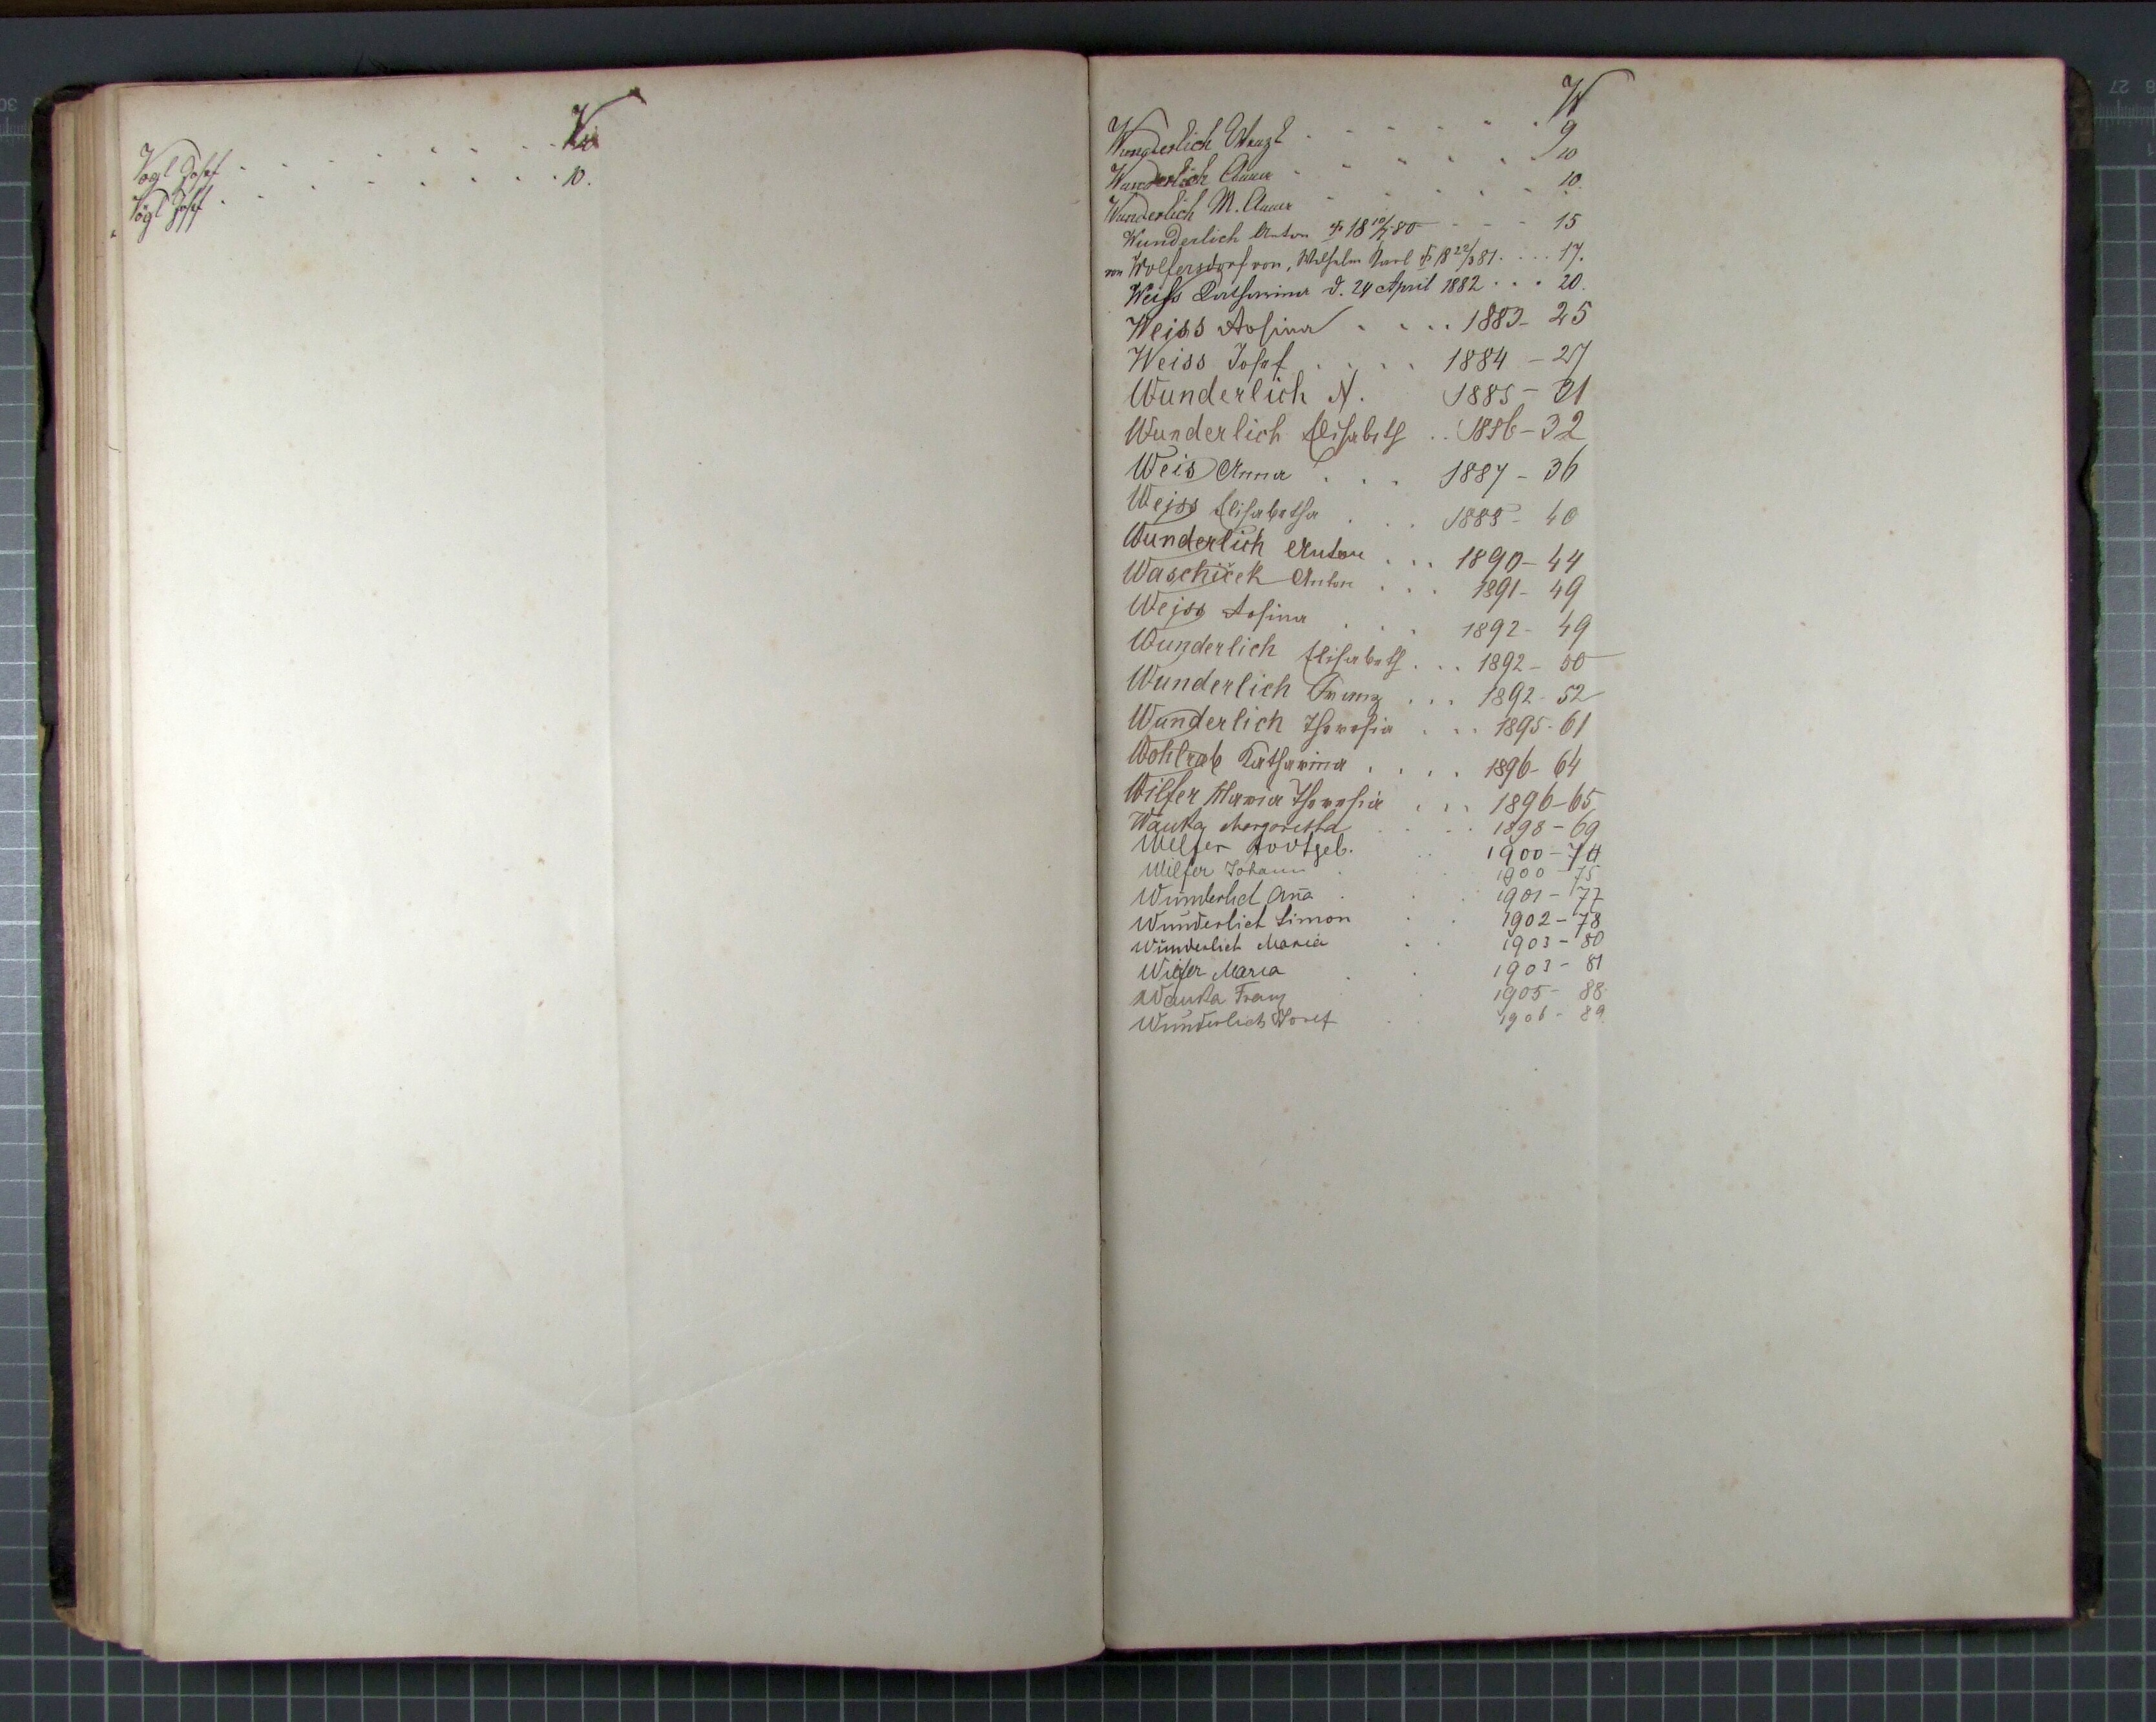 V
Vogl Josef . . . . . . . . 10
Vögl Josef . . . . . . . . 10.
W
Wunderlich . . . . . . . 9
Wunderlich Anna . . . . . . 10
Wunderlich M. Anna . . . . . 10.
Wunderlich Anton 18 80 - - - 15
von Wolfersdorf von, Wilhelm Karl 18 22/3 81 . . . . 17.
Weiss Katharina d. 24 April 1882 . . . 20.
Weiss Rosina . . . . 1883 - 25
Weiss Josef . . . . 1884 - 27
Wunderlich N. 1885 - 31
Wunderlich Elisabeth . . 1886 - 32
Weis Anna . . . 1887 - 36
Weiss Elisabetha . . . 1888 - 40
Wunderlich Anton . . . 1890 - 44
Waschiček Anton . . . 1891 - 49
Weiss Rosina . . . 1892 - 49
Wunderlich Elisabeth . . . 1892 - 50
Wunderlich Franz . . . 1892 - 52
Wunderlich Theresia . . . 1895 - 61
Wohlrab Katharina . . . . 1896 - 64
Wilfer Maria Theresia . . . 1896 - 65
Wauka Margaretha . . . . 1898 - 69
Wilfer todtgeb. . . 1900 - 74
Wilfer Johann . . 1900 75
Wunderlich Ana . . . 1901 - 77
Wunderlich Simon . . 1902 - 78
Wunderlich Maria . . 1903 - 80
Wilfer Maria . . 1903 - 81
Wauka Franz . . 1905 - 88
Wunderlich Josef . . 1906 - 89